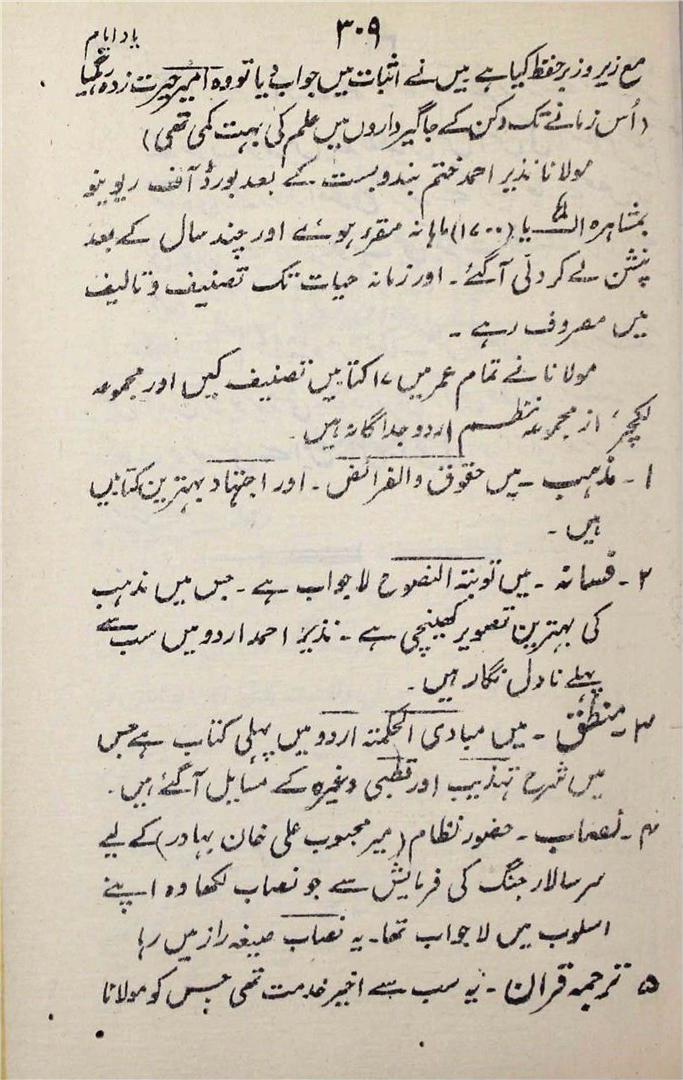 ۳۰۹
یاد ایام
مع زیر و زبر حفظ کیا ہے میں نے اثبات میں جواب دیا تو وہ امیر حیرت زدہ رہ گیا
(اُس زمانے تک دکن کے جاگیرداروں میں علم کی بہت کمی تھی)
مولانا نذیر احمد ختم بندوبست کے بعد بورڈ آف ریوینو
بمشاہرہ (۱۷۰۰) ماہانہ مقرر ہوئے اور چند سال کے بعد
پنشن لے کر دلّی آگئے۔ اور زمانہ حیات تک تصنیف و تالیف
میں مصروف رہے۔
مولانا نے تمام عمر میں ۱۷ کتابیں تصنیف کیں اور مجموعہ
لکچر، از مجموعہ نظم اردو جداگانہ ہیں۔
۱۔ مذہب۔ میں حقوق والفرائض۔ اور اجتہاد بہترین کتابیں
ہیں۔
۲۔ فسانہ۔ میں توبتہ النصوح لاجواب ہے۔ جس میں مذہب
کی بہترین تصویر کھینچی ہے۔ نذیر احمد اردو میں سب سے
پہلے ناول نگار ہیں۔
۳۔ منطق۔ میں مبادی الحکمتہ اردو میں پہلی کتاب ہے جس
میں شرح تہذیب اور قطبی وغیرہ کے مسایل آگئے ہیں۔
۴۔ نصاب۔ حضور نظام (میر محبوب علی خان بہادر) کے لیے
سر سالار جنگ کی فرمایش سے جو نصاب لکھا وہ اپنے
اسلوب میں لاجواب تھا۔ یہ نصاب صیغہ راز میں رہا
۵ ترجمہ قرآن۔ یہ سب سے اخیر خدمت تھی جس کو مولانا